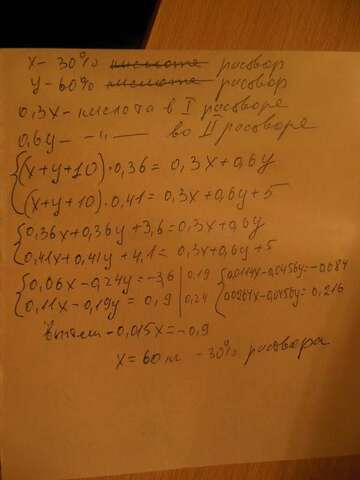 x - 30% кислота раствор
y - 60% кислота раствор
0,3x - кислота в I растворе
0,6y - -"- во II растворе
(x+y+10)·0,36 = 0,3x+0,6y
(x+y+10)·0,41 = 0,3x+0,6y+5
0,36x+0,36y+3,6=0,3x+0,6y
0,41x+0,41y+4,1=0,3x+0,6y+5
0,06x-0,24y=-3,6 | 0,19 0,0114x-0,0456y=-0,684
0,11x-0,19y=0,9 | 0,24 0,0264x-0,0456y=0,216
-0,015x=-0,9
x=60 - 30% раствора